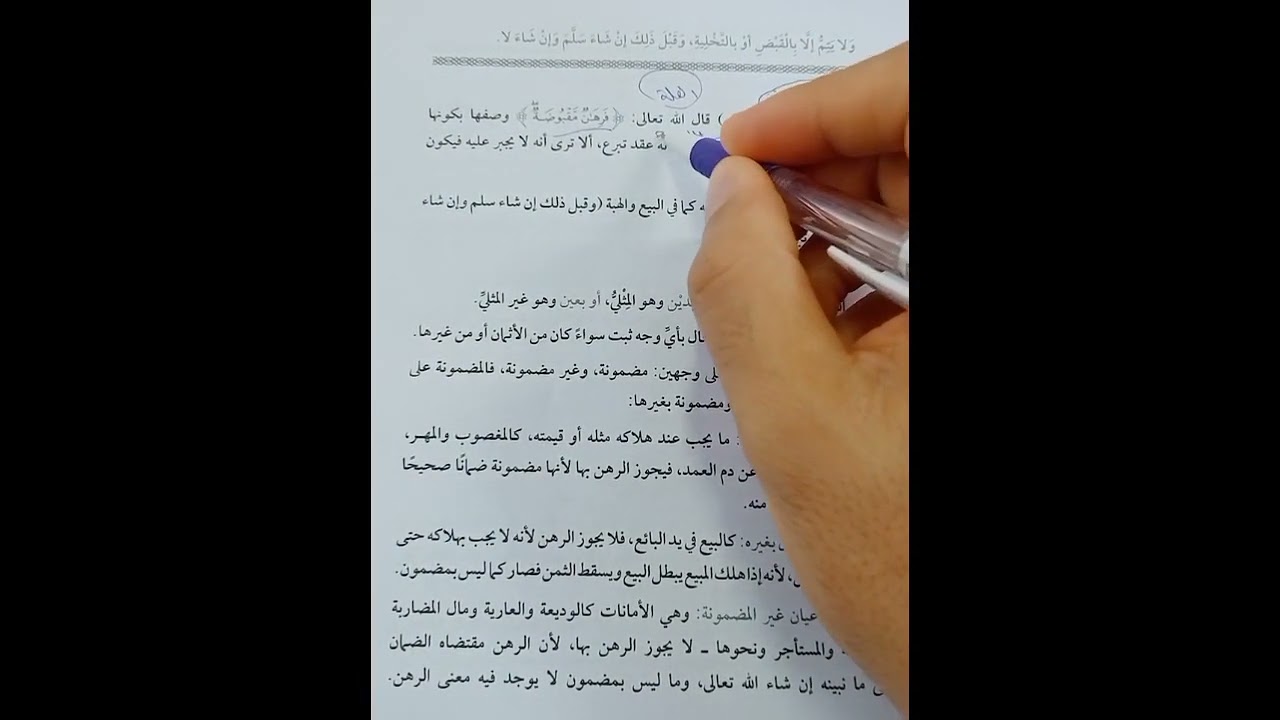 وَلَا يَتِمُّ إِلَّا بِالْقَبْضِ أَوْ بِالتَّخْلِيَةِ، وَقَبْلَ ذَلِكَ إِنْ شَاءَ سَلَّمَ وَإِنْ شَاءَ لَا.
) قال الله تعالى: ﴿فَرِهَانٌ مَّقْبُوضَةٌ﴾ وصفها بكونها
عقد تبرع، ألا ترى أنه لا يجبر عليه فيكون
كما في البيع والهبة (وقبل ذلك إن شاء سلم وإن شاء
وهو المِثْليُّ، أو بعين وهو غير المثليِّ.
بأيِّ وجه ثبت سواءً كان من الأثمان أو من غيرها.
وجهين: مضمونة، وغير مضمونة، فالمضمونة على
ومضمونة بغيرها:
: ما يجب عند هلاكه مثله أو قيمته، كالمغصوب والمهر،
عن دم العمد، فيجوز الرهن بها لأنها مضمونة ضمانًا صحيحًا
منه.
بغيره: كالبيع في يد البائع، فلا يجوز الرهن لأنه لا يجب بهلاكه حتى
، لأنه إذا هلك المبيع يبطل البيع ويسقط الثمن فصار كما ليس بمضمون.
غير المضمونة: وهي الأمانات كالوديعة والعارية ومال المضاربة
والمستأجر ونحوها ــ لا يجوز الرهن بها، لأن الرهن مقتضاه الضمان
ما نبينه إن شاء الله تعالى، وما ليس بمضمون لا يوجد فيه معنى الرهن.